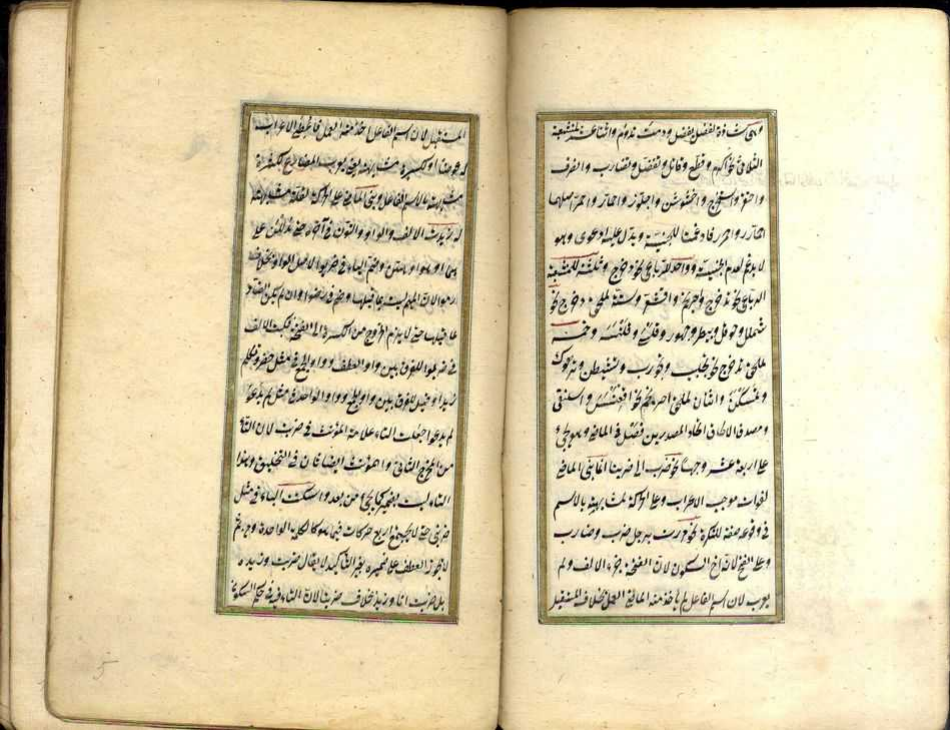 وهى شاذة كفضل يفضل ودمت تدوم واثنا عشر لمنشعبة
الثلاثى نحو اكرم وقطع وقاتل وتفضل وتضارب وانصرف
واحتقر واستخرج واخشوشن واجلوز واحمار واحمر اصلهما
احمارر واحمرر فادغمتا للجنسية ويدل عليه ارعوى وهو
لا يدغم لعدم الجنسية وواحد للرباعى نحو دحرج وثلثة لمنشعبة
الرباعى نحو تدحرج واحرنجم واقشعر وستة لملحق دحرج نحو
شملل وحوقل وبيطر وجهور وقلسى وقلنس وخمسة
لملحق تدحرج نحو تجلبب وتجورب وتشيطن وترهوك
وتمسكن واثنان لملحق احرنجم نحو اقعنسس واسلنقى
ومصداق الالحاق اتحاد المصدرين فصل فى الماضى وهو يجىء
على اربعة عشر وجها نحو ضرب الى ضربنا انما بنى الماضى
لفوات موجب الاعراب وعلى الحركة لمشابهته بالاسم
فى وقوعه صفة للنكرة نحو مررت برجل ضرب وضارب
وعلى الفتح لانه اخ السكون لان الفتحة جزء الالف ولم
يعرب لان اسم الفاعل لم ياخذ منه الماضى العمل بخلاف المستقبل
المستقبل لان اسم الفاعل اخذ منه العمل فاعطى الاعراب
له عوضا او لكثرة مشابهته يعنى يعرب المضارع لكثرة
مشابهته بالاسم الفاعل وبنى الماضى على الحركة لقلة مشابهته
له زيدت الالف والواو والنون فى آخره حتى يدللن على
هما وهموا وهن وضم الباء فى ضربوا لاجل الواو بخلاف
رموا لان الميم ليست بما قبلها وضم فى رضوا وان لم يكن الضاد
بما قبلها حتى لا يلزم الخروج من الكسرة الى الضمة كتبت الالف
فى ضربوا للفرق بين واو العطف وواو الجمع فى مثل حضر وتكلم
زيد وقيل للفرق بين واو الجمع وواو الواحد فى مثل لم يدعوا
لم يدعو جعلت التاء علامة المؤنث فى ضربت لان التاء
من المخرج الثانى والمؤنث ايضا ثان فى التخليق وهذه
التاء ليست بضمير كما يجىء من بعد واسكنت الباء فى مثل
ضربن حتى لا يجتمع اربع حركات فيما هو كالكلمة الواحدة ومن ثم
لا يجوز العطف على ضميره بغير التاكيد لا يقال ضربت وزيد
بل ضربت انا وزيد بخلاف ضربتا لان التاء فيه فى حكم السكون